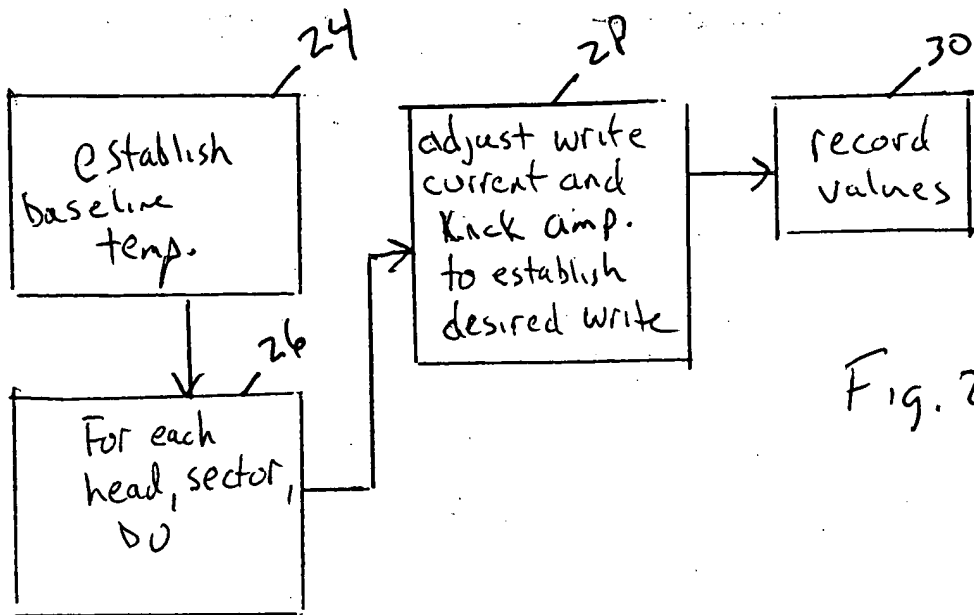 24
establish
baseline
temp.
26
For each
head, sector,
DO
28
adjust write
current and
Kick amp.
to establish
desired write
30
record
values
Fig. 2